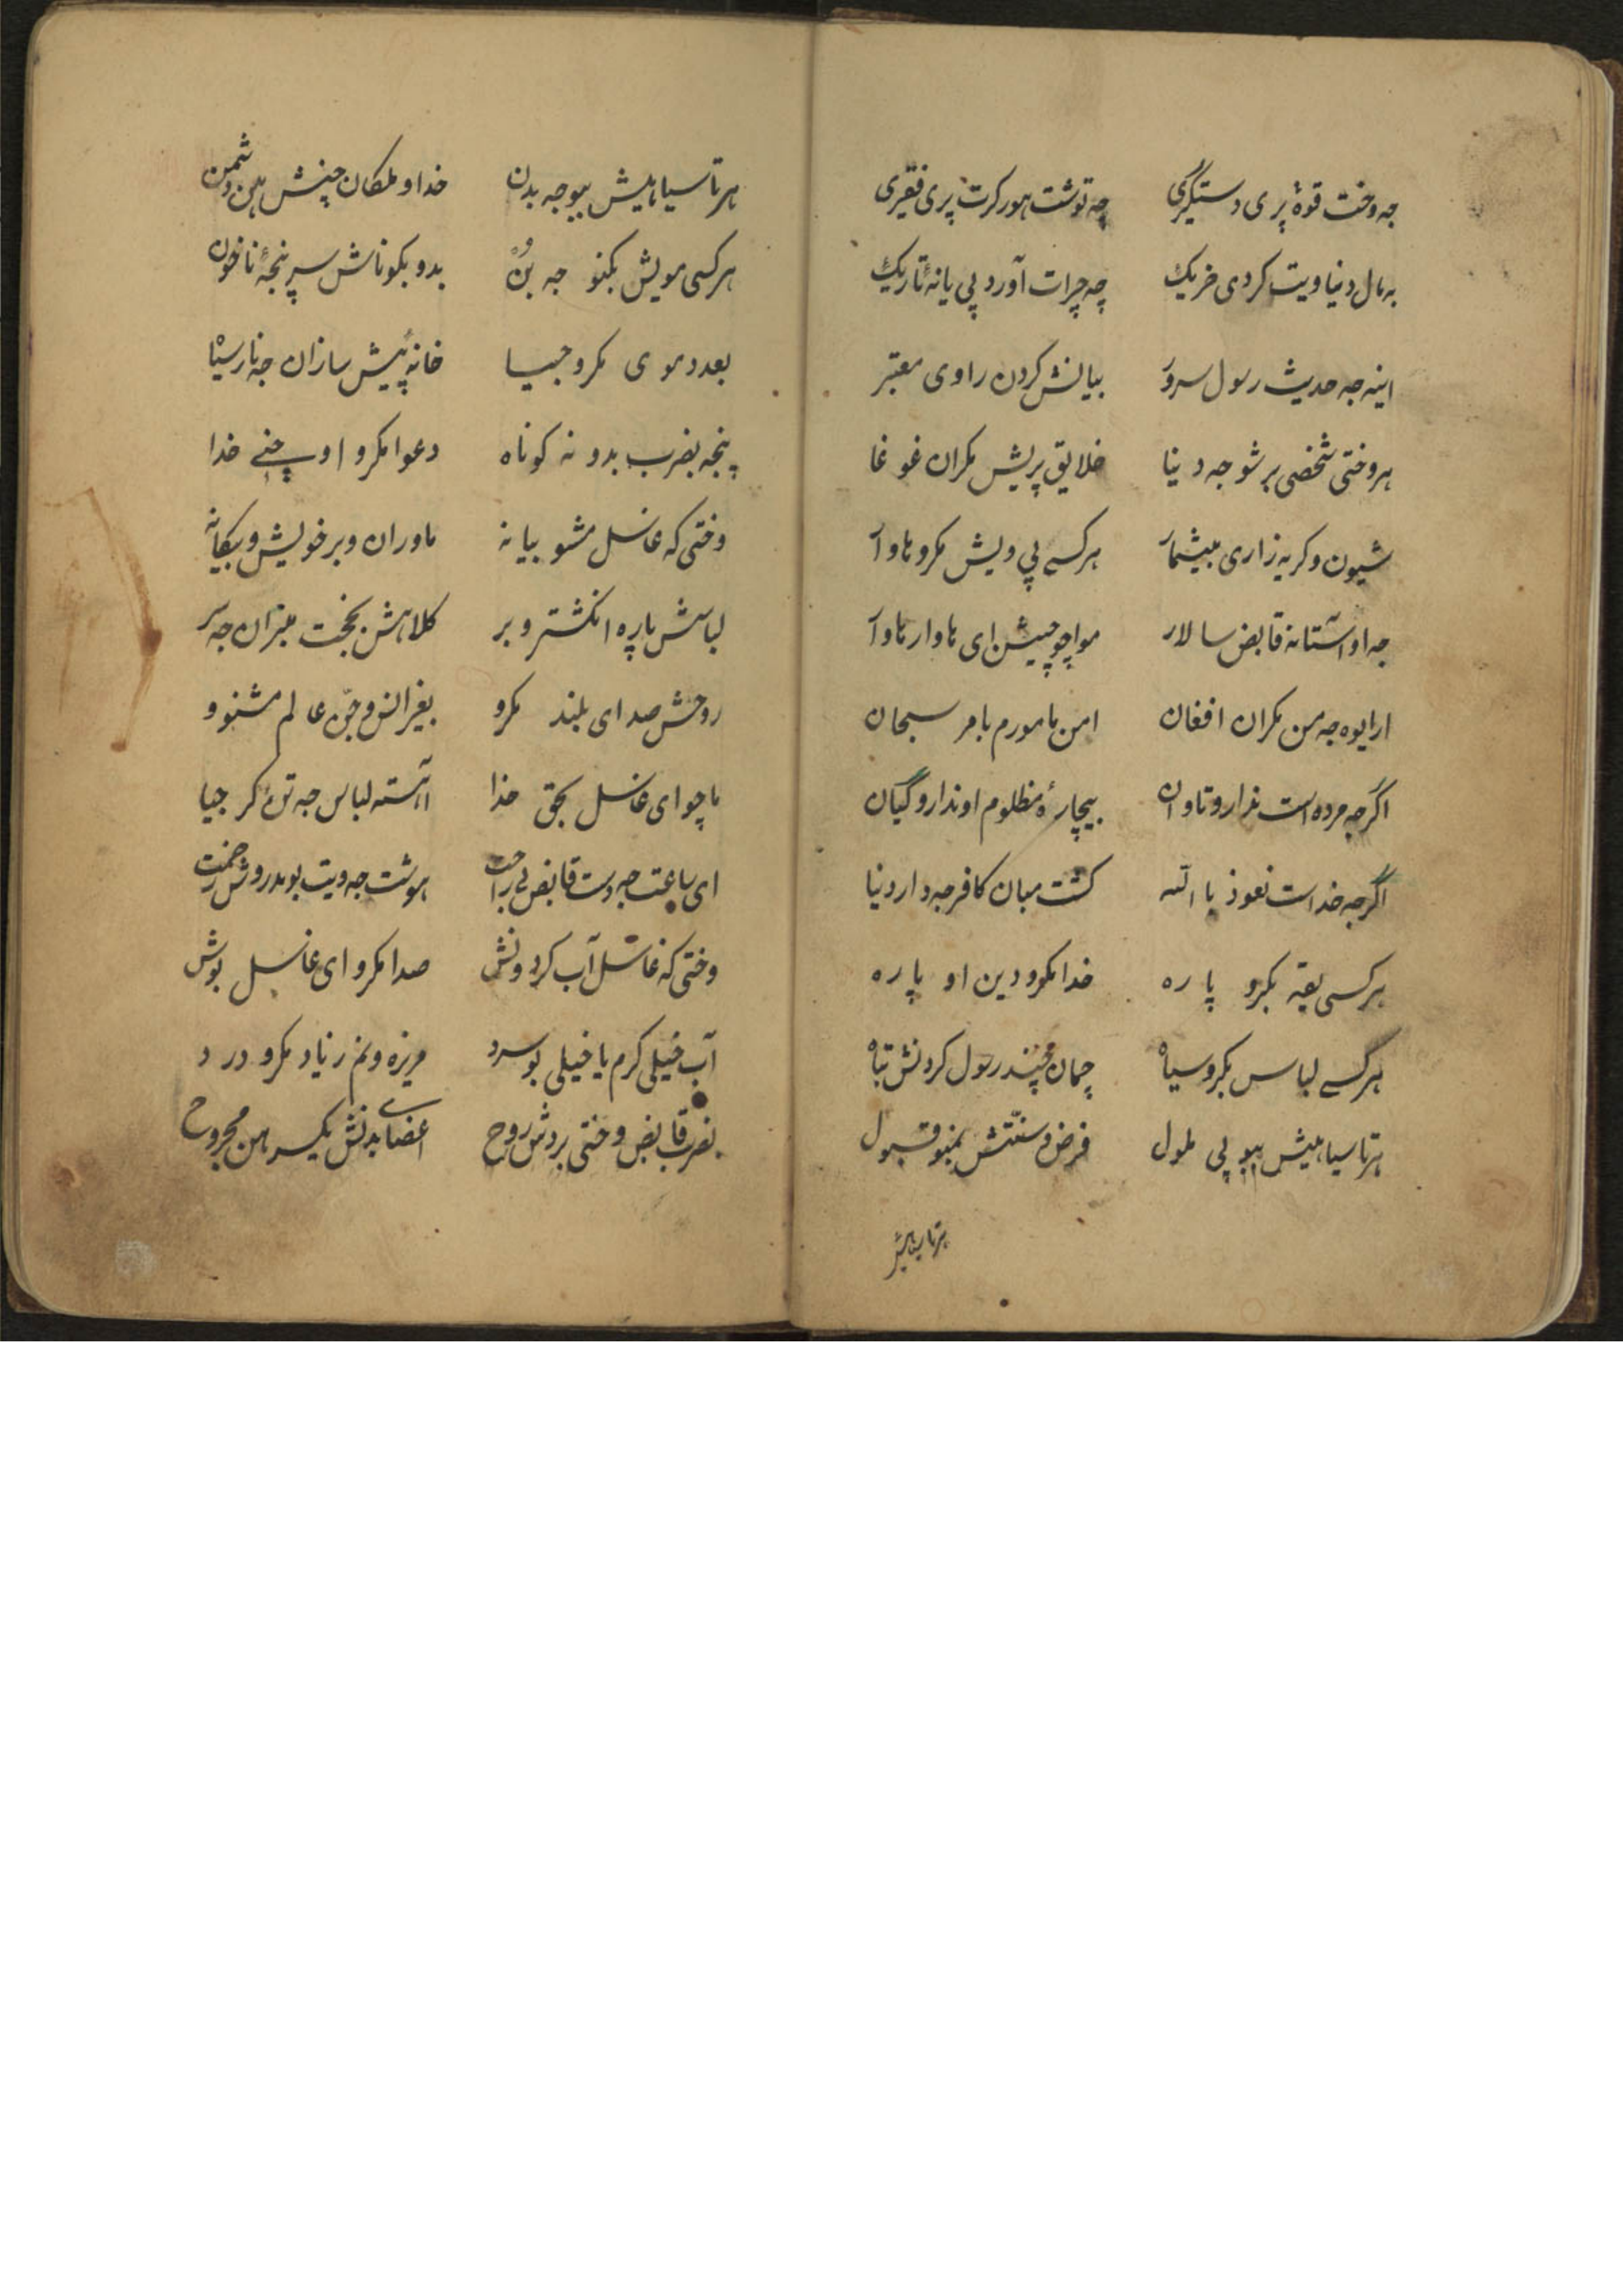 جه وخت قوهٔ پری دستگیری چه توشت هور کرت پری فقیری
به مال دنیا ویت کردی خریک چه چرات آورد پی یانهٔ تاریک
اینه جه حدیث رسول سرور بیانش کردن راوی معتبر
هر وختی شخصی برشو جه دنیا خلایق پریش مکران غوغا
شیون و کریه زاری بیشمار هر کسے پی ویش مکرو هاوار
جه او آستانه قابض سالار مواچو چیش ای هاوار هاوار
ارایوه جه من مکران افغان من مامورم بامر سبحان
اگر جه مرده است ندارو تاوان بیچارهٔ مظلوم او ندارو گیان
اگر جه خداست نعوذ بالله کشت مبان کافر جه دار دنیا
هر کسی یقه بکرو پاره خدا مکرو دین او پاره
هر کسے لباس بکرو سیاه چمان چند رسول کردنش تباه
هر تا سیاهیش ببو پی ملول فرض و سنتش نمبو قبول
هر تا سیاهیش
هر تا سیاهیش ببو جه بدن خدا و ملکان چنش هن دشمن
هر کسی مویش بکنو جه بن بدو بکوناش سر پنجهٔ ناخون
بعد دموی مکرو جیا خانه پیش سازان جه نار سیا
پنجه بضرب بدو نه کوناه دعوا مکرو او چنے خدا
وختی که غاسل مشو بیانه ماوران وبر خویش و بیکانه
لباسش پاره انکشتر و بر کلاهش بخجت میزان جه سر
روحش صدای بلند مکرو بغیر انس و جن عالم مشنوو
ماچو ای غاسل بحق خدا آهسته لباس جه تن کر جیا
ای ساعت جه دست قابض بی راحت هوشت جه ویت بو مدروش زحمت
وختی که غاسل آب کرد ونش صدا مکرو ای غاسل بوش
آب خیلی کرم یا خیلی بو سرد مریزه ونم زیاد مکرو درد
بضرب قابض وختی بردش روح اعضای بدنش یکسر هن مجروح